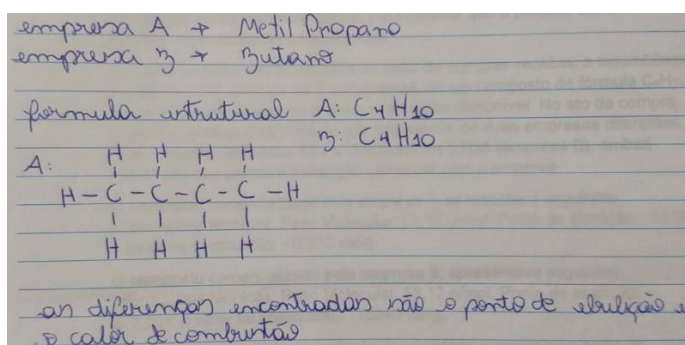 empresa A → Metil Propano
empresa B → Butano
formula estrutural A: C4H10
B: C4H10
A: H H H H
H - C - C - C - C - H
H H H H
as diferenças encontradas são o ponto de ebulição e
o calor de combustão